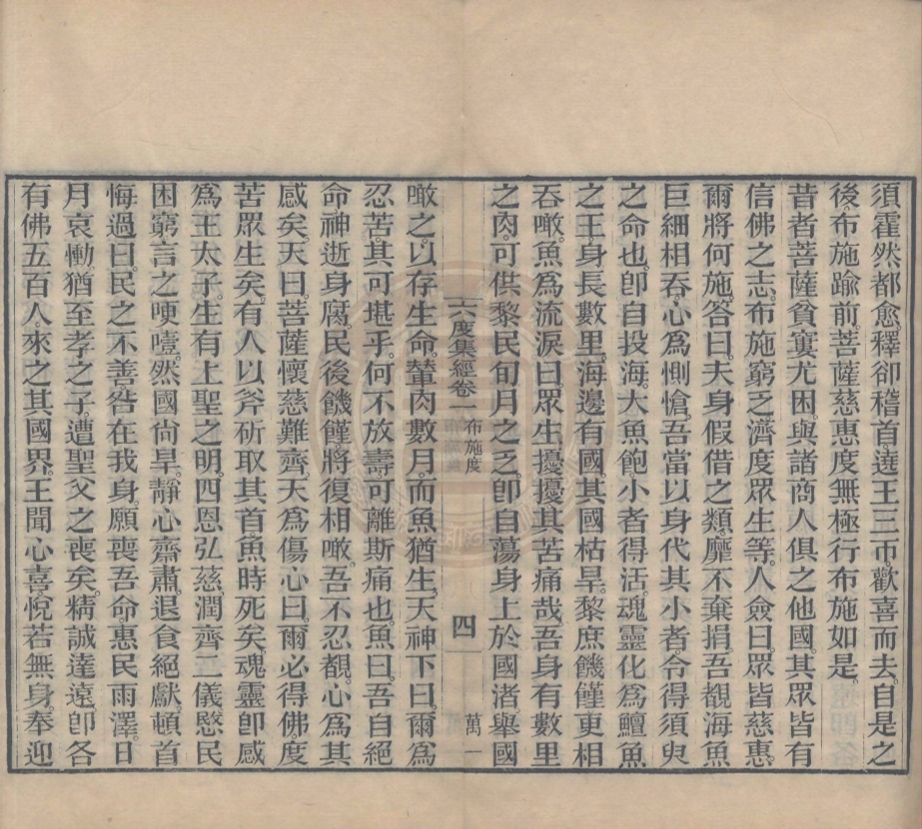 須霍然都愈。釋卻稽首遶王三帀。歡喜而去。自是之
後布施踰前。菩薩慈惠度無極行布施如是。
昔者菩薩貧窶尤困。與諸商人俱之他國。其眾皆有
信佛之志。布施窮乏。濟度眾生。等人僉曰。眾皆慈惠。
爾將何施。答曰。夫身假借之類。靡不棄捐。吾覩海魚
巨細相吞。心為惻愴。吾當以身代其小者。令得須臾
之命也。即自投海。大魚飽小者得活。魂靈化為鱣魚
之王。身長數里。海邊有國。其國枯旱。黎庶饑饉。更相
吞噉。魚為流淚曰。眾生擾擾其苦痛哉。吾身有數里
之肉。可供黎民旬月之乏。即自蕩身上於國渚。舉國
六度集經卷一 布施度 四 萬一
噉之。以存生命。輦肉數月。而魚猶生。天神下曰。爾為
忍苦。其可堪乎。何不放壽。可離斯痛也。魚曰。吾自絕
命。神逝身腐。民後饑饉。將復相噉。吾不忍覩。心為其
感矣。天曰。菩薩懷慈難齊。天為傷心曰。爾必得佛。度
苦眾生矣。有人以斧斫取其首。魚時死矣。魂靈即感
為王太子。生有上聖之明。四恩弘慈。潤齊二儀。愍民
困窮。言之哽噎。然國尚旱。靜心齋肅。退食絕獻。頓首
悔過曰。民之不善。咎在我身。願喪吾命。惠民雨澤。日
月哀慟。猶至孝之子。遭聖父之喪矣。精誠達遠。即各
有佛五百人。來之其國界。王聞心喜。悅若無身。奉迎